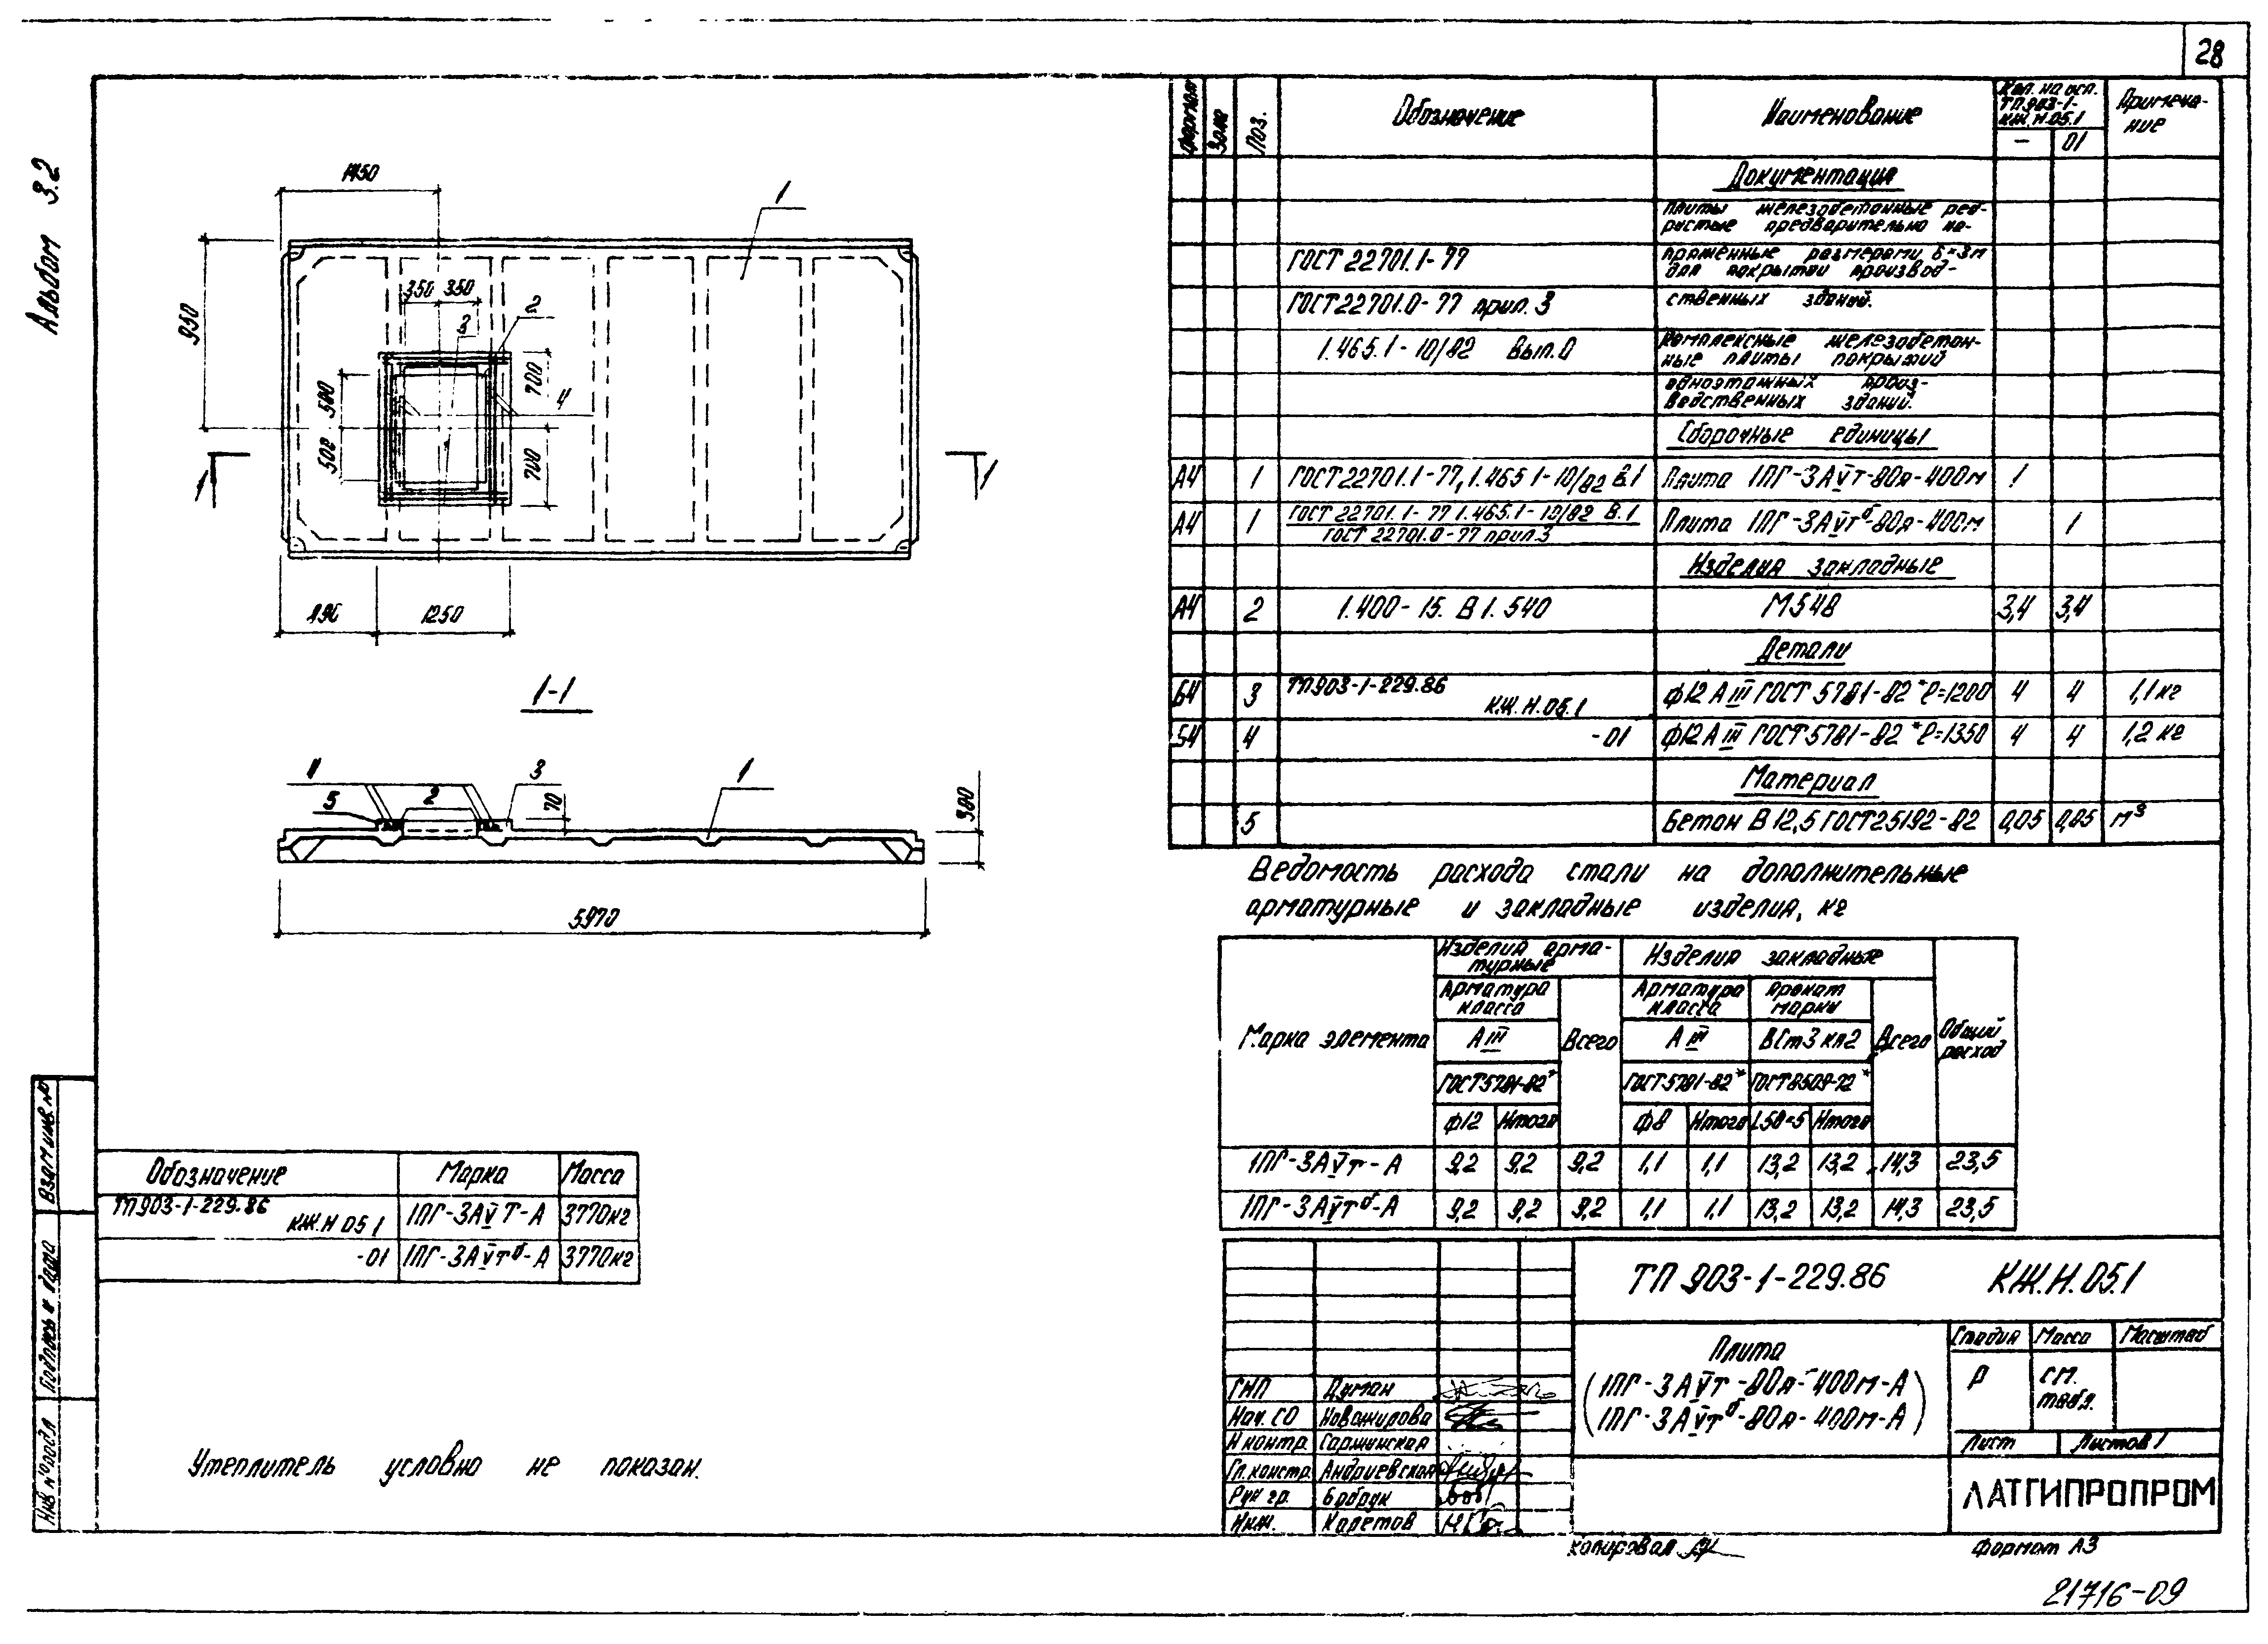 28
Альбом 3.2
1450
1
950
350 350
2
3
500
700
4
500
700
1
1
890
1250
1-1
3
1
5
2
70
300
5970
Формат
Зона
Поз.
Обозначение
Наименование
Кол. на исп.
ТП 903-1-
КЖ.И.05.1
Примеча-
ние
– 01
Документация
Плиты железобетонные реб-
ристые предварительно на-
ГОСТ 22701.1-77
пряжённые размерами 6×3м
для покрытий производ-
ГОСТ 22701.0-77 прил. 3
ственных зданий.
1.465.1-10/82 Вып.0
Комплексные железобетон-
ные плиты покрытий
одноэтажных произ-
водственных зданий.
Сборочные единицы
А4 1 ГОСТ 22701.1-77, 1.465 1-10/82 В.1 Плита 1ПГ-3АVт-80я-400м 1
А4 1 ГОСТ 22701.1-77 1.465.1-10/82 В.1 Плита 1ПГ-3АVтб-80я-400м 1
ГОСТ 22701.0-77 прил.3
Изделия закладные
А4 2 1.400-15. В1. 540 М548 3,4 3,4
Детали
Б4 3 ТП903-1-229.86 ф12 АIII ГОСТ 5781-82* ℓ=1200 4 4 1,1 кг
КЖ.И.05.1
Б4 4 -01 ф12 АIII ГОСТ 5781-82* ℓ=1350 4 4 1,2 кг
Материал
5 Бетон В 12,5 ГОСТ25192-82 0,05 0,05 м³
Ведомость расхода стали на дополнительные
арматурные и закладные изделия, кг
Марка элемента
Изделия арма-
турные
Изделия закладные
Общий
расход
Арматура
класса
Всего
Арматура
класса
Прокат
марки
Всего
АIII
АIII
ВСт3 кп2
ГОСТ5781-82*
ГОСТ5781-82*
ГОСТ8509-72*
ф12 Итого ф8 Итого L50×5 Итого
1ПГ-3АVт-А 9,2 9,2 9,2 1,1 1,1 13,2 13,2 14,3 23,5
1ПГ-3АVтб-А 9,2 9,2 9,2 1,1 1,1 13,2 13,2 14,3 23,5
Обозначение Марка Масса
ТП903-1-229.86
КЖ.И 05 1 1ПГ-3АVТ-А 3770кг
-01 1ПГ-3АVтб-А 3770кг
Утеплитель условно не показан.
Взам инв. №
Подпись и дата
Инв № подл
ТП 903-1-229.86 КЖ.И.05.1
Плита
(1ПГ-3АVт-80я-400м-А)
(1ПГ-3АVтб-80я-400м-А)
Стадия Масса Масштаб
Р см.
табл.
Лист Листов 1
ЛАТГИПРОПРОМ
ГИП Думан
Нач. СО Новожилова
Н контр.
Гл. констр. Андриевская
Рук гр. Бобрук
Инж. Каретов
копировал
формат А3
21716-09